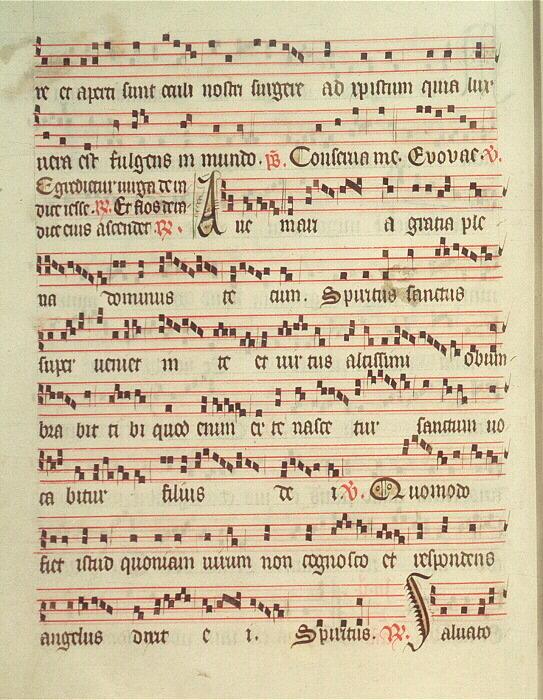 re et aperti sunt oculi nostri surgere ad xpistum quia lux
vera est fulgens in mundo. ps. Conserva me. Evovae. V.
Egredietur virga de ra
dice iesse. R. Et flos de ra
dice eius ascendet R.
Ave mari a gratia ple
na dominus te cum. Spiritus sanctus
super veniet in te et vir tus altissimi obum-
bra bit ti bi quod enim ex te nasce tur sanctum vo
ca bitur filius de i. V. Quomodo
fiet istud quoniam virum non cognosco et respondens
angelus dixit e i. Spiritus. R. Salvato